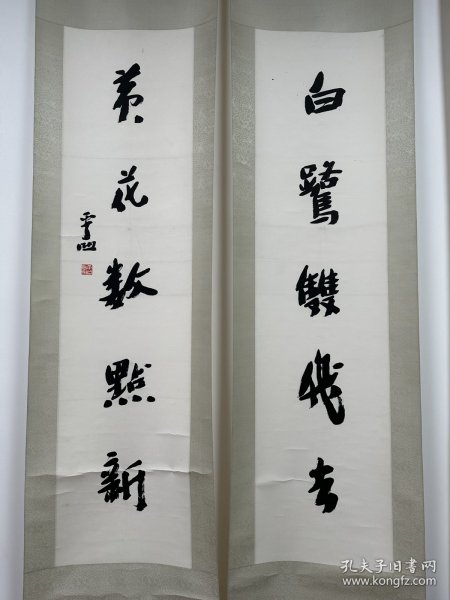 白鷺雙飛去
黄花数點新
孔夫子旧书网
www.kongfz.com